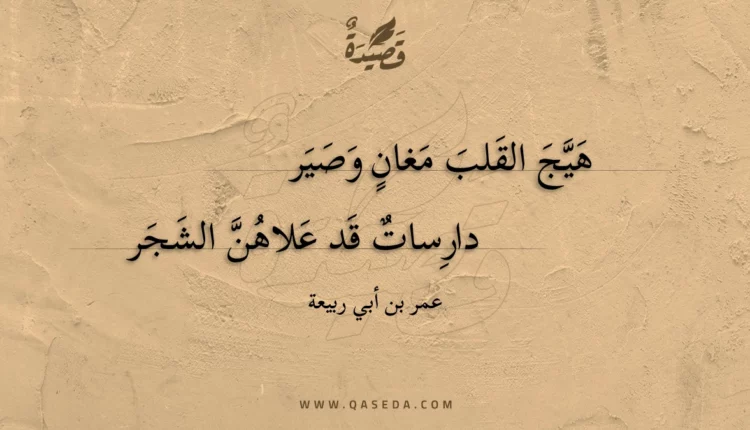 قَصِيدَةٌ
هَيَّجَ القَلبَ مَغانٍ وَصَيَر
دارِساتٌ قَد عَلاهُنَّ الشَجَر
عمر بن أبي ربيعة
WWW.QASEDA.COM